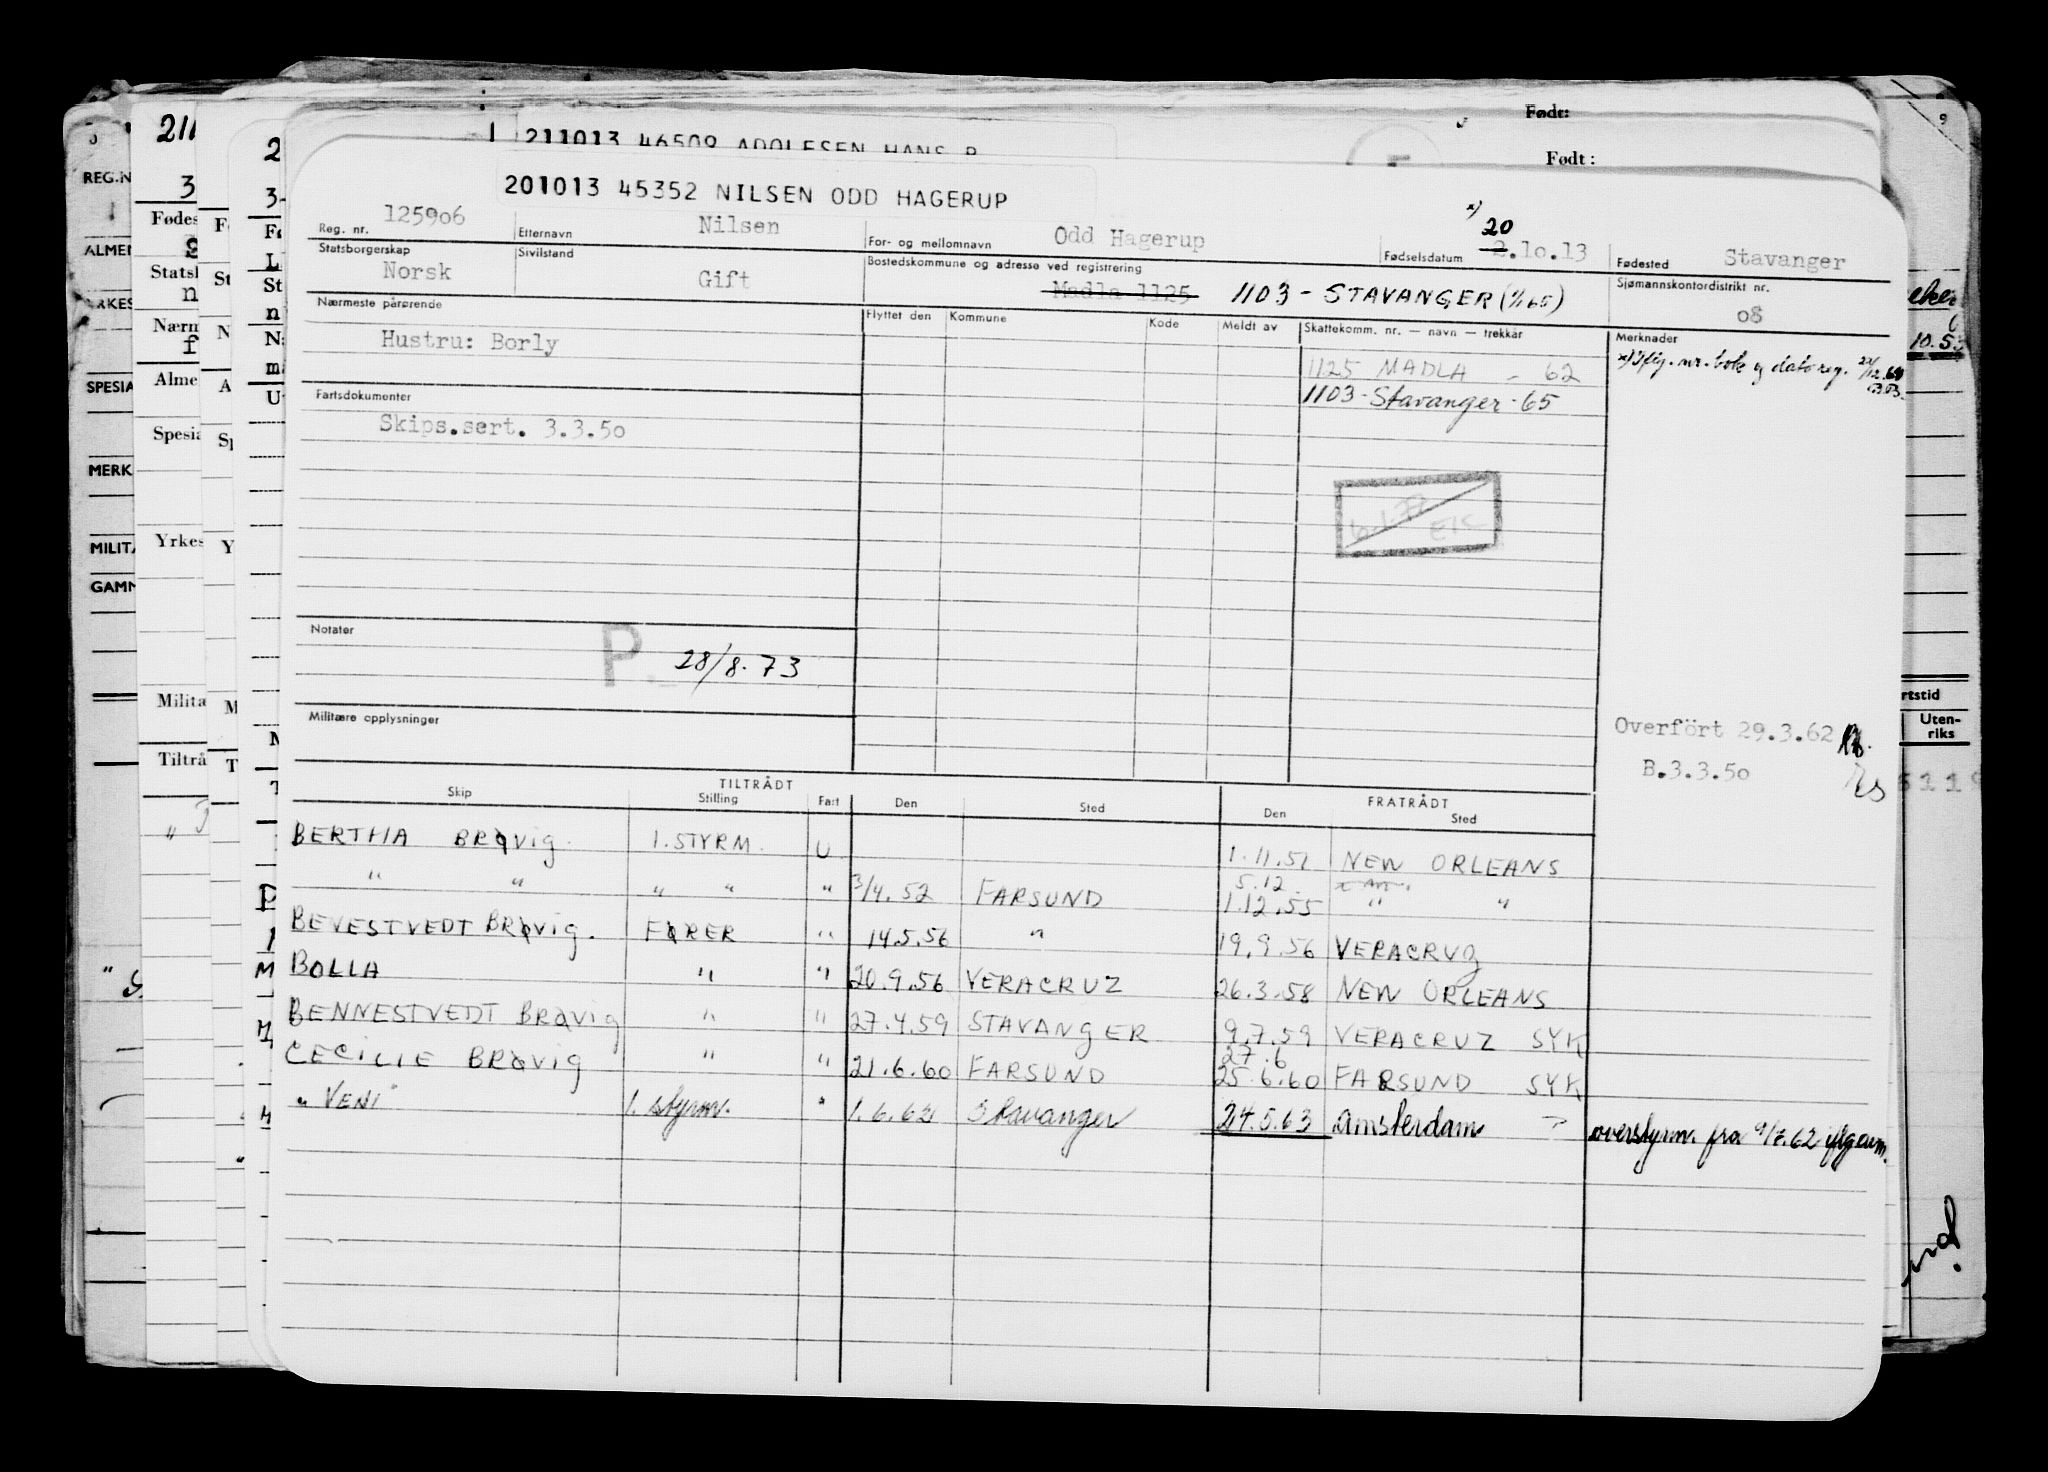 Født:
211013 46509 ADOLFSEN HANS P
Født :
201013 45352 NILSEN ODD HAGERUP
Reg. nr. 125906 Etternavn Nilsen For- og mellomnavn Odd Hagerup Fødselsdatum x) 20 2.10.13 Fødested Stavanger
Statsborgerskap Norsk Sivilstand Gift Bostedskommune og adresse ved registrering Madla 1125 1103 - STAVANGER (1/1 65) Sjømannskontordistrikt nr. 08
Nærmeste pårørende Flyttet den Kommune Kode Meldt av Skattekomm. nr. — navn — trekkår Merknader
Hustru: Borly 1125 MADLA - 62
1103 - Stavanger - 65
Fartsdokumenter
Skips.sert. 3.3.50
Notater
P 28/8.73
Militære opplysninger
Overført 29.3.62
B.3.3.50
TILTRÅDT FRATRÅDT
Skip Stilling Fa:t Den Sted Den Sted
BERTHA BRØVIG 1.STYRM. U 1.11.51 NEW ORLEANS
" " " " " 3/4.52 FARSUND 5.12. 1.12.55 " "
BEVESTVEDT BRØVIG. FØRER " 14.5.56 " 19.9.56 VERACRUZ
BOLLA " " 20.9.56 VERACRUZ 26.3.58 NEW ORLEANS
BENNESTVEDT BRØVIG " " 27.4.59 STAVANGER 9.7.59 VERACRUZ SYK
CECILIE BRØVIG " " 21.6.60 FARSUND 27.6 25.6.60 FARSUND SYK
"VENI" 1. styrm. " 1.6.62 Stavanger 24.5.63 Amsterdam overstyrm. fra 9/7.62
REG.N
ALMEN
SPESIA
MERK
MILITÆ
GAMM
Stats
Nærn
Alme
Spesia
Yrkes
Milita
Tiltrå
rtstid
Uten-
riks